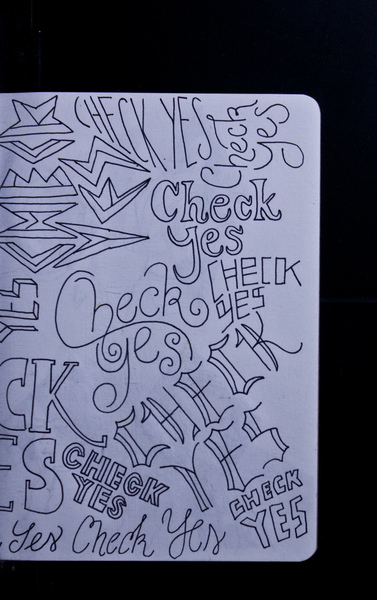 CHECK YES
Check
yes
Check
yes
CHECK
YES
Check
yes
YES
CHECK
YES
CK
ES
CHECK
YES
CHECK
YES
Yes Check Yes